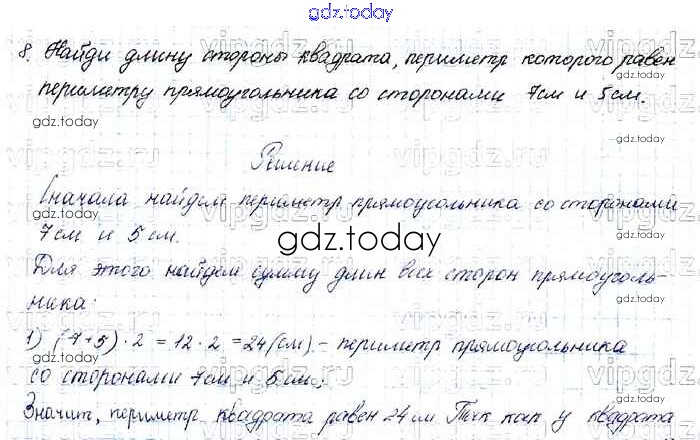 gdz.today
8. Найди длину стороны квадрата, периметр которого равен
периметру прямоугольника со сторонами 7см и 5см.
gdz.today
gdz.today
vipgdz.ru
Решение
Сначала найдем периметр прямоугольника со сторонами
7см и 5см.
gdz.today
gdz.today
gdz.today
Для этого найдем сумму длин всех сторон прямоуголь-
ника:
1) (7+5)·2=12·2=24(см) - периметр прямоугольника
со сторонами 7см и 5см;
gdz.today
gdz.today
Значит, периметр квадрата равен 24см Так как у квадрата
gdz.today